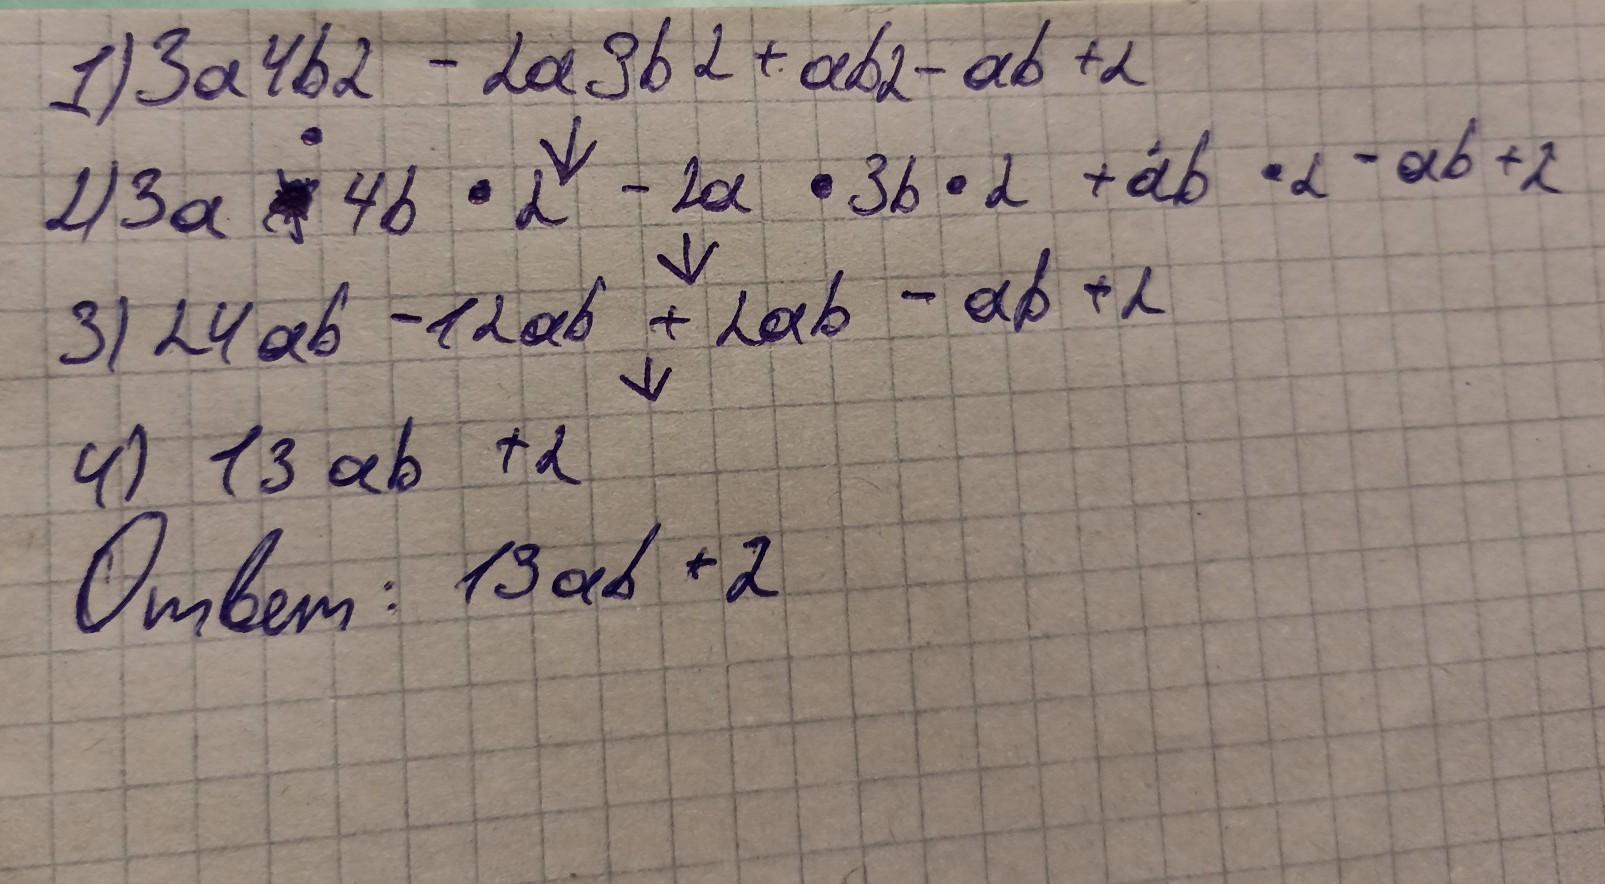 1) 3a4b2 - 2a3b2 + ab2 - ab + 2
2) 3a • 4b • 2 - 2a • 3b • 2 + ab • 2 - ab + 2
3) 24ab - 12ab + 2ab - ab + 2
4) 13ab + 2
Ответ: 13ab + 2